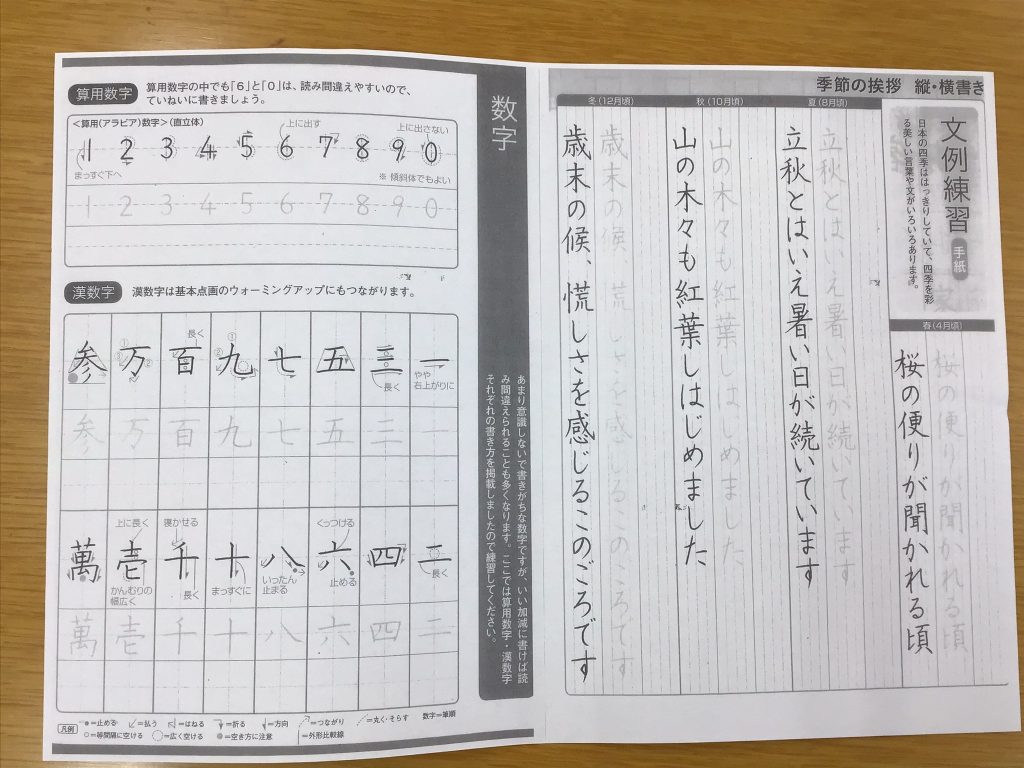 季節の挨拶 縦・横書き
文例練習
手紙
日本の四季ははっきりしていて、四季を彩
る美しい言葉や文がいろいろあります。
春(4月頃)
桜の便りが聞かれる頃
桜の便りが聞かれる頃
夏(8月頃)
立秋とはいえ暑い日が続いています
立秋とはいえ暑い日が続いています
秋(10月頃)
山の木々も紅葉しはじめました
山の木々も紅葉しはじめました
冬(12月頃)
歳末の候、慌しさを感じるこのごろです
歳末の候、慌しさを感じるこのごろです
数字
あまり意識しないで書きがちな数字ですが、いい加減に書けば読
み間違えられることも多くなります。ここでは算用数字・漢数字
それぞれの書き方を掲載しましたので練習してください。
算用数字
算用数字の中でも「6」と「0」は、読み間違えやすいので、
ていねいに書きましょう。
<算用(アラビア)数字>(直立体)
上に出す
上に出さない
1 2 3 4 5 6 7 8 9 0
まっすぐ下へ
※ 傾斜体でもよい
1 2 3 4 5 6 7 8 9 0
漢数字
漢数字は基本点画のウォーミングアップにもつながります。
一
やや
右上がりに
三
長く
五
七
九
百
長く
万
参
参 万 百 九 七 五 三 一
二
長く
四
六
くっつける
止める
八
いったん
止まる
十
まっすぐに
千
寝かせる
長く
壱
上に長く
かんむりの
幅広く
萬
萬 壱 千 十 八 六 四 二
凡例
=止める =払う =はねる =折る =方向 =つながり =丸く・そらす 数字=筆順
=等間隔に空ける =広く空ける =空き方に注意 =外形比較線